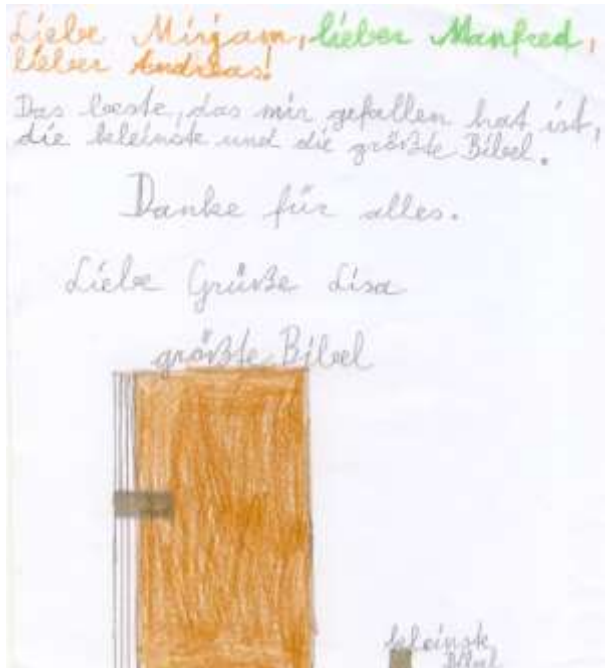 Liebe Mirjam, lieber Manfred,
lieber Andreas!
Das beste, das mir gefallen hat ist,
die kleinste und die größte Bibel.
Danke für alles.
Liebe Grüße Lisa
größte Bibel
kleinste
Bibel